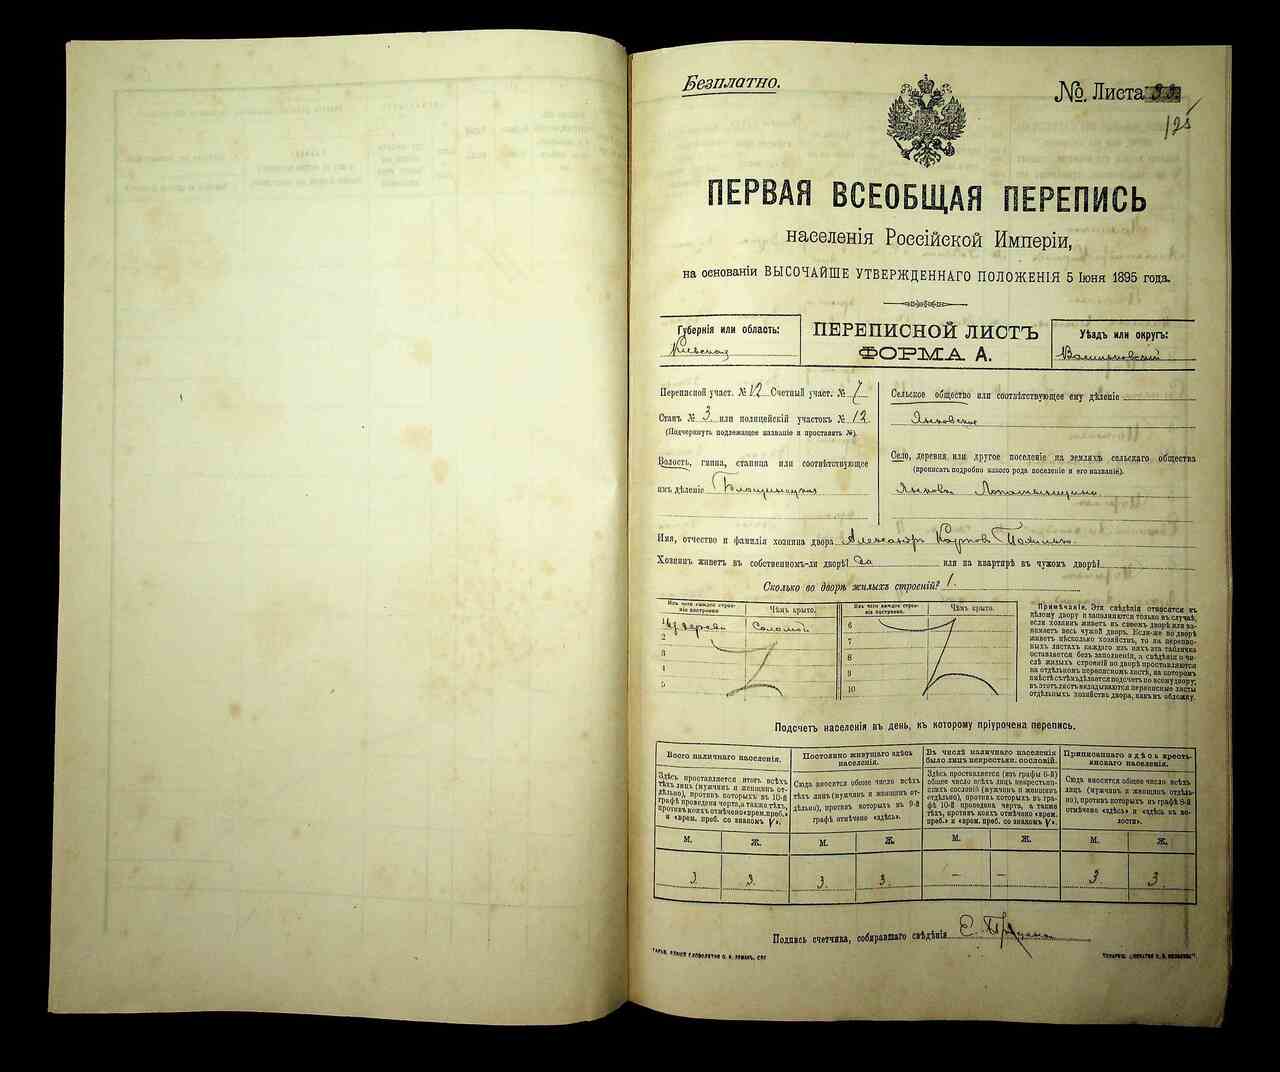 Безплатно.
№. Листа
125
ПЕРВАЯ ВСЕОБЩАЯ ПЕРЕПИСЬ
населенія Россійской Имперіи,
на основаніи ВЫСОЧАЙШЕ УТВЕРЖДЕННАГО ПОЛОЖЕНІЯ 5 Іюня 1895 года.
Губернія или область:
Кіевская
ПЕРЕПИСНОЙ ЛИСТЪ
ФОРМА А.
Уѣздъ или округъ:
Васильковскій
Переписной участ. № 12 Счетный участ. № 7
Станъ № 3. или полицейскій участокъ № 12.
(Подчеркнуть подлежащее названіе и проставить №).
Волость, гмина, станица или соотвѣтствующее
имъ дѣленіе
Сельское общество или соотвѣтствующее ему дѣленіе
Село, деревня или другое поселеніе на земляхъ сельскаго общества
(прописать подробно какого рода поселеніе и его названіе).
Имя, отчество и фамилія хозяина двора Александръ Карповъ
Хозяинъ живетъ въ собственномъ-ли дворѣ? да или на квартирѣ въ чужомъ дворѣ?
Сколько во дворѣ жилыхъ строеній? 1.
Изъ чего каждое строе-
ніе построено.
Чѣмъ крыто.
1 изъ дерева соломой
2
3
4
5
Изъ чего каждое строе-
ніе построено.
Чѣмъ крыто.
6
7
8
9
10
Примѣчаніе. Эти свѣдѣнія относятся къ
цѣлому двору и заполняются только въ случаѣ,
если хозяинъ живетъ въ своемъ дворѣ или за-
нимаетъ весь чужой дворъ. Если-же во дворѣ
живетъ нѣсколько хозяйствъ, то на перепис-
ныхъ листахъ каждаго изъ нихъ эта табличка
оставляется безъ заполненія, а свѣдѣнія о чи-
слѣ жилыхъ строеній во дворѣ проставляются
на отдѣльномъ переписномъ листѣ, на которомъ
вмѣстѣ съ тѣмъ дѣлается подсчетъ по всему двору;
въ этотъ листъ вкладываются переписные листы
отдѣльныхъ хозяйствъ двора, какъ въ обложку.
Подсчетъ населенія въ день, къ которому пріурочена перепись.
Всего наличнаго населенія.
Здѣсь проставляется итогъ всѣхъ
тѣхъ лицъ (мужчинъ и женщинъ от-
дѣльно), противъ которыхъ въ 10-й
графѣ проведена черта, а также тѣхъ,
противъ коихъ отмѣчено «врем. преб.»
и «врем. преб. со знакомъ V».
Постоянно живущаго здѣсь
населенія.
Сюда вносится общее число всѣхъ
тѣхъ лицъ (мужчинъ и женщинъ от-
дѣльно), противъ которыхъ въ 9-й
графѣ отмѣчено «здѣсь».
Въ числѣ наличнаго населенія
было лицъ некрестьян. сословій.
Здѣсь проставляется (изъ графы 6-й)
общее число всѣхъ лицъ некрестьян-
скихъ сословій (мужчинъ и женщинъ
отдѣльно), противъ которыхъ въ гра-
фѣ 10-й проведена черта, а также
тѣхъ, противъ коихъ отмѣчено «врем.
преб.» и «врем. преб. со знакомъ V».
Приписаннаго здѣсь кресть-
янскаго населенія.
Сюда вносится общее число всѣхъ
лицъ (мужчинъ и женщинъ отдѣль-
но), противъ которыхъ въ графѣ 8-й
отмѣчено «здѣсь» и «здѣсь въ во-
лости».
М. Ж. М. Ж. М. Ж. М. Ж.
3. 3. 3. 3. – – 3. 3.
Подпись счетчика, собиравшаго свѣдѣнія